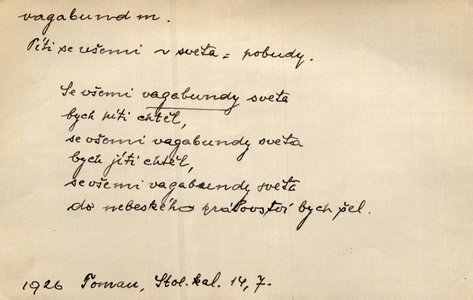 vagabund m.
Píti se všemi v světa = pobudy.
Se všemi vagabundy světa
bych píti chtěl,
se všemi vagabundy světa
bych jíti chtěl,
se všemi vagabundy světa
do nebeského království bych šel.
1926 Toman, Stol. kal. 14, 7.